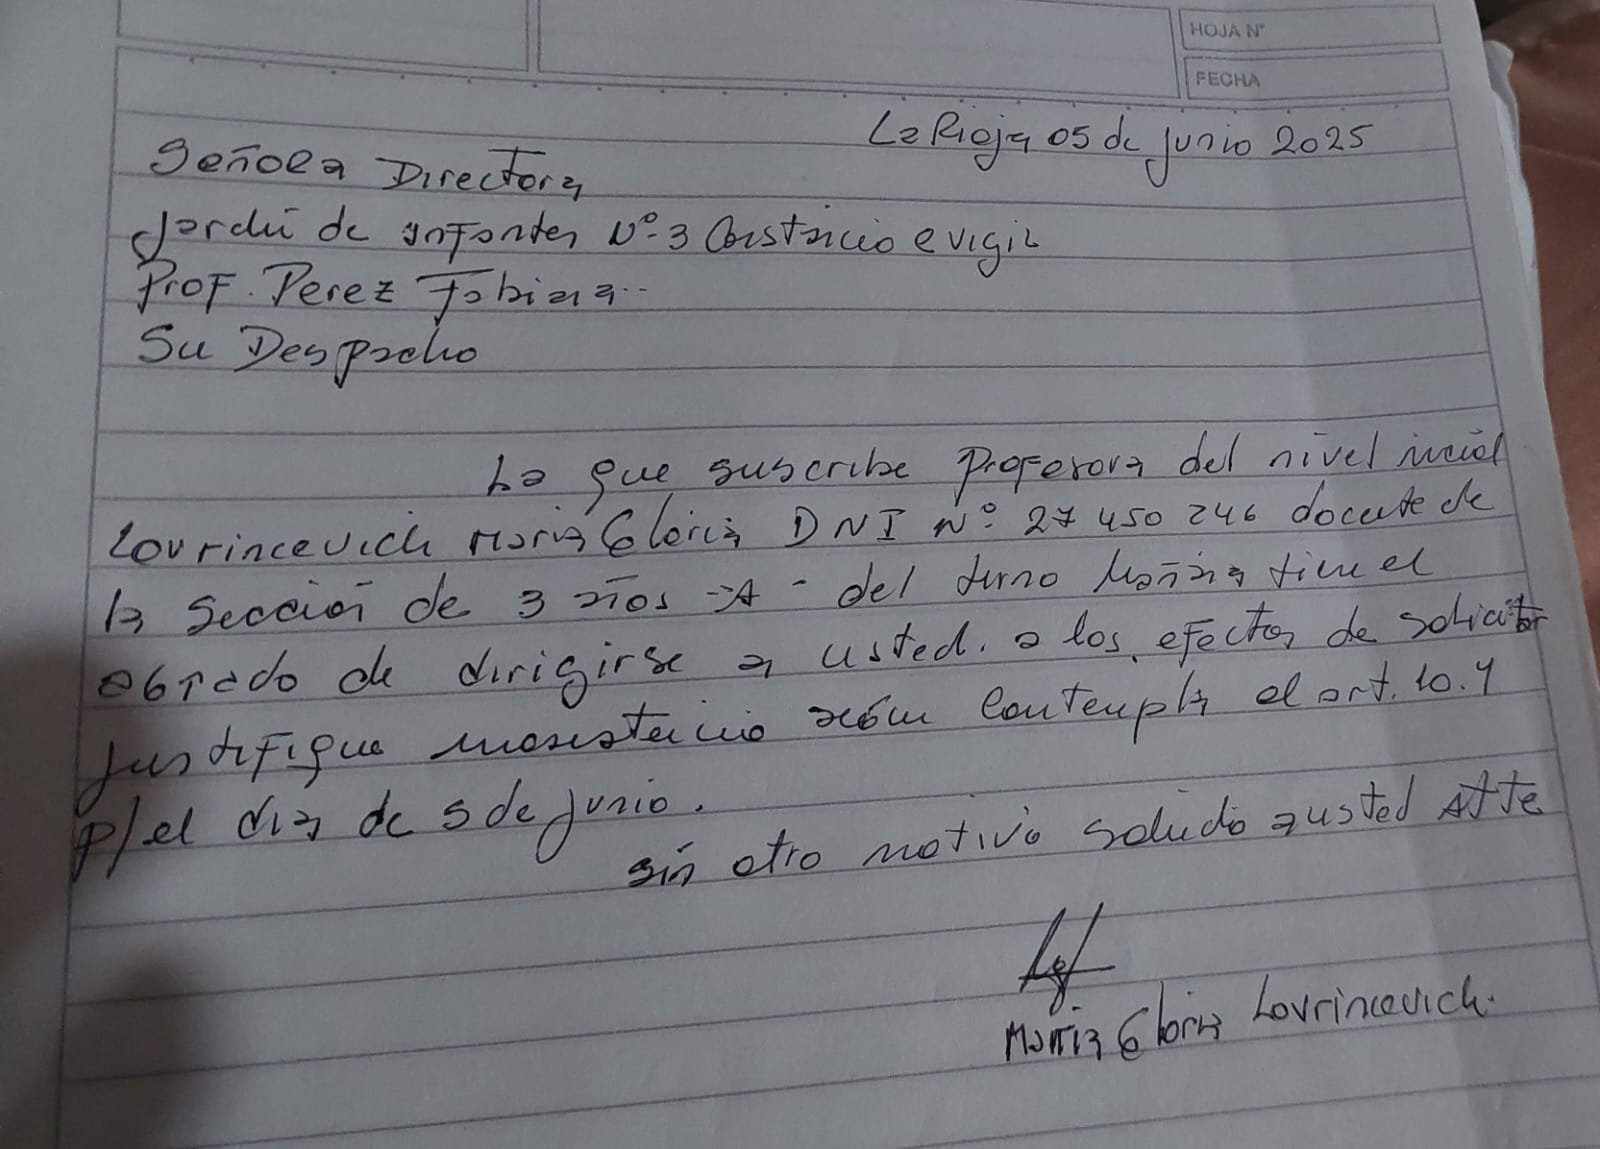 HOJA N°
FECHA
La Rioja 05 de junio 2025
Señora Directora
Jardin de infantes N° 3 Constancio C Vigil
Prof. Perez Fabiana..
Su Despacho
La que suscribe Profesora del nivel inicial
Lovrincevich Maria Gloria DNI N° 27 450 246 docente de
la Sección de 3 años "A" del turno Mañana tiene el
agrado de dirigirse a usted. a los efectos de solicitar
justifique inasistencia según contempla el art. 10.4
p/el dia de 5 de junio.
sin otro motivo saludo a usted Atte
Maria Gloria Lovrincevich.